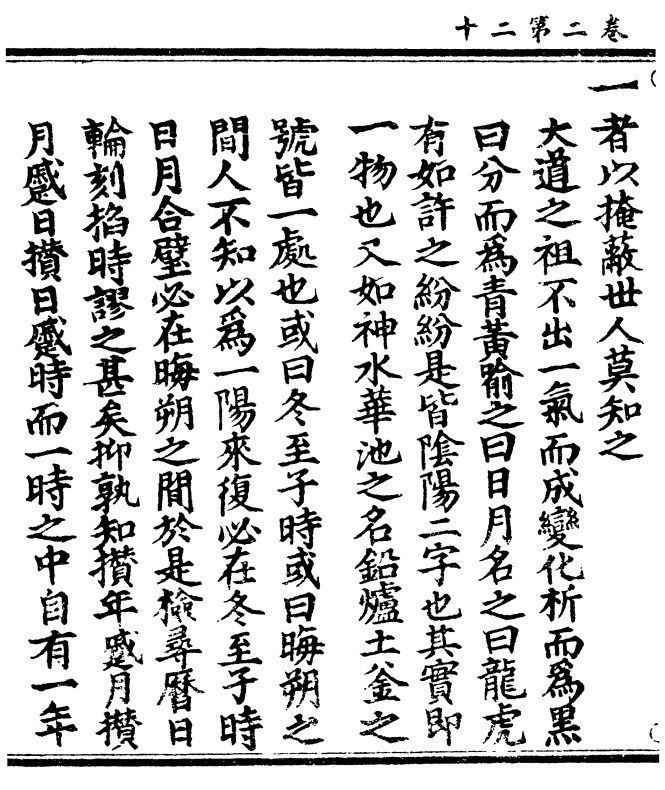 卷二第二十
一者以掩蔽世人莫知之
大道之祖不出一氣而成變化析而爲黑
曰分而爲青黃喻之曰日月名之曰龍虎
有如許之紛紛是皆陰陽二字也其實即
一物也又如神水華池之名鉛爐土釜之
號皆一處也或曰冬至子時或曰晦朔之
間人不知以爲一陽來復必在冬至子時
日月合璧必在晦朔之間於是檢尋曆日
輪刻掐時謬之甚矣抑孰知攅年蹙月攅
月蹙日攅日蹙時而一時之中自有一年